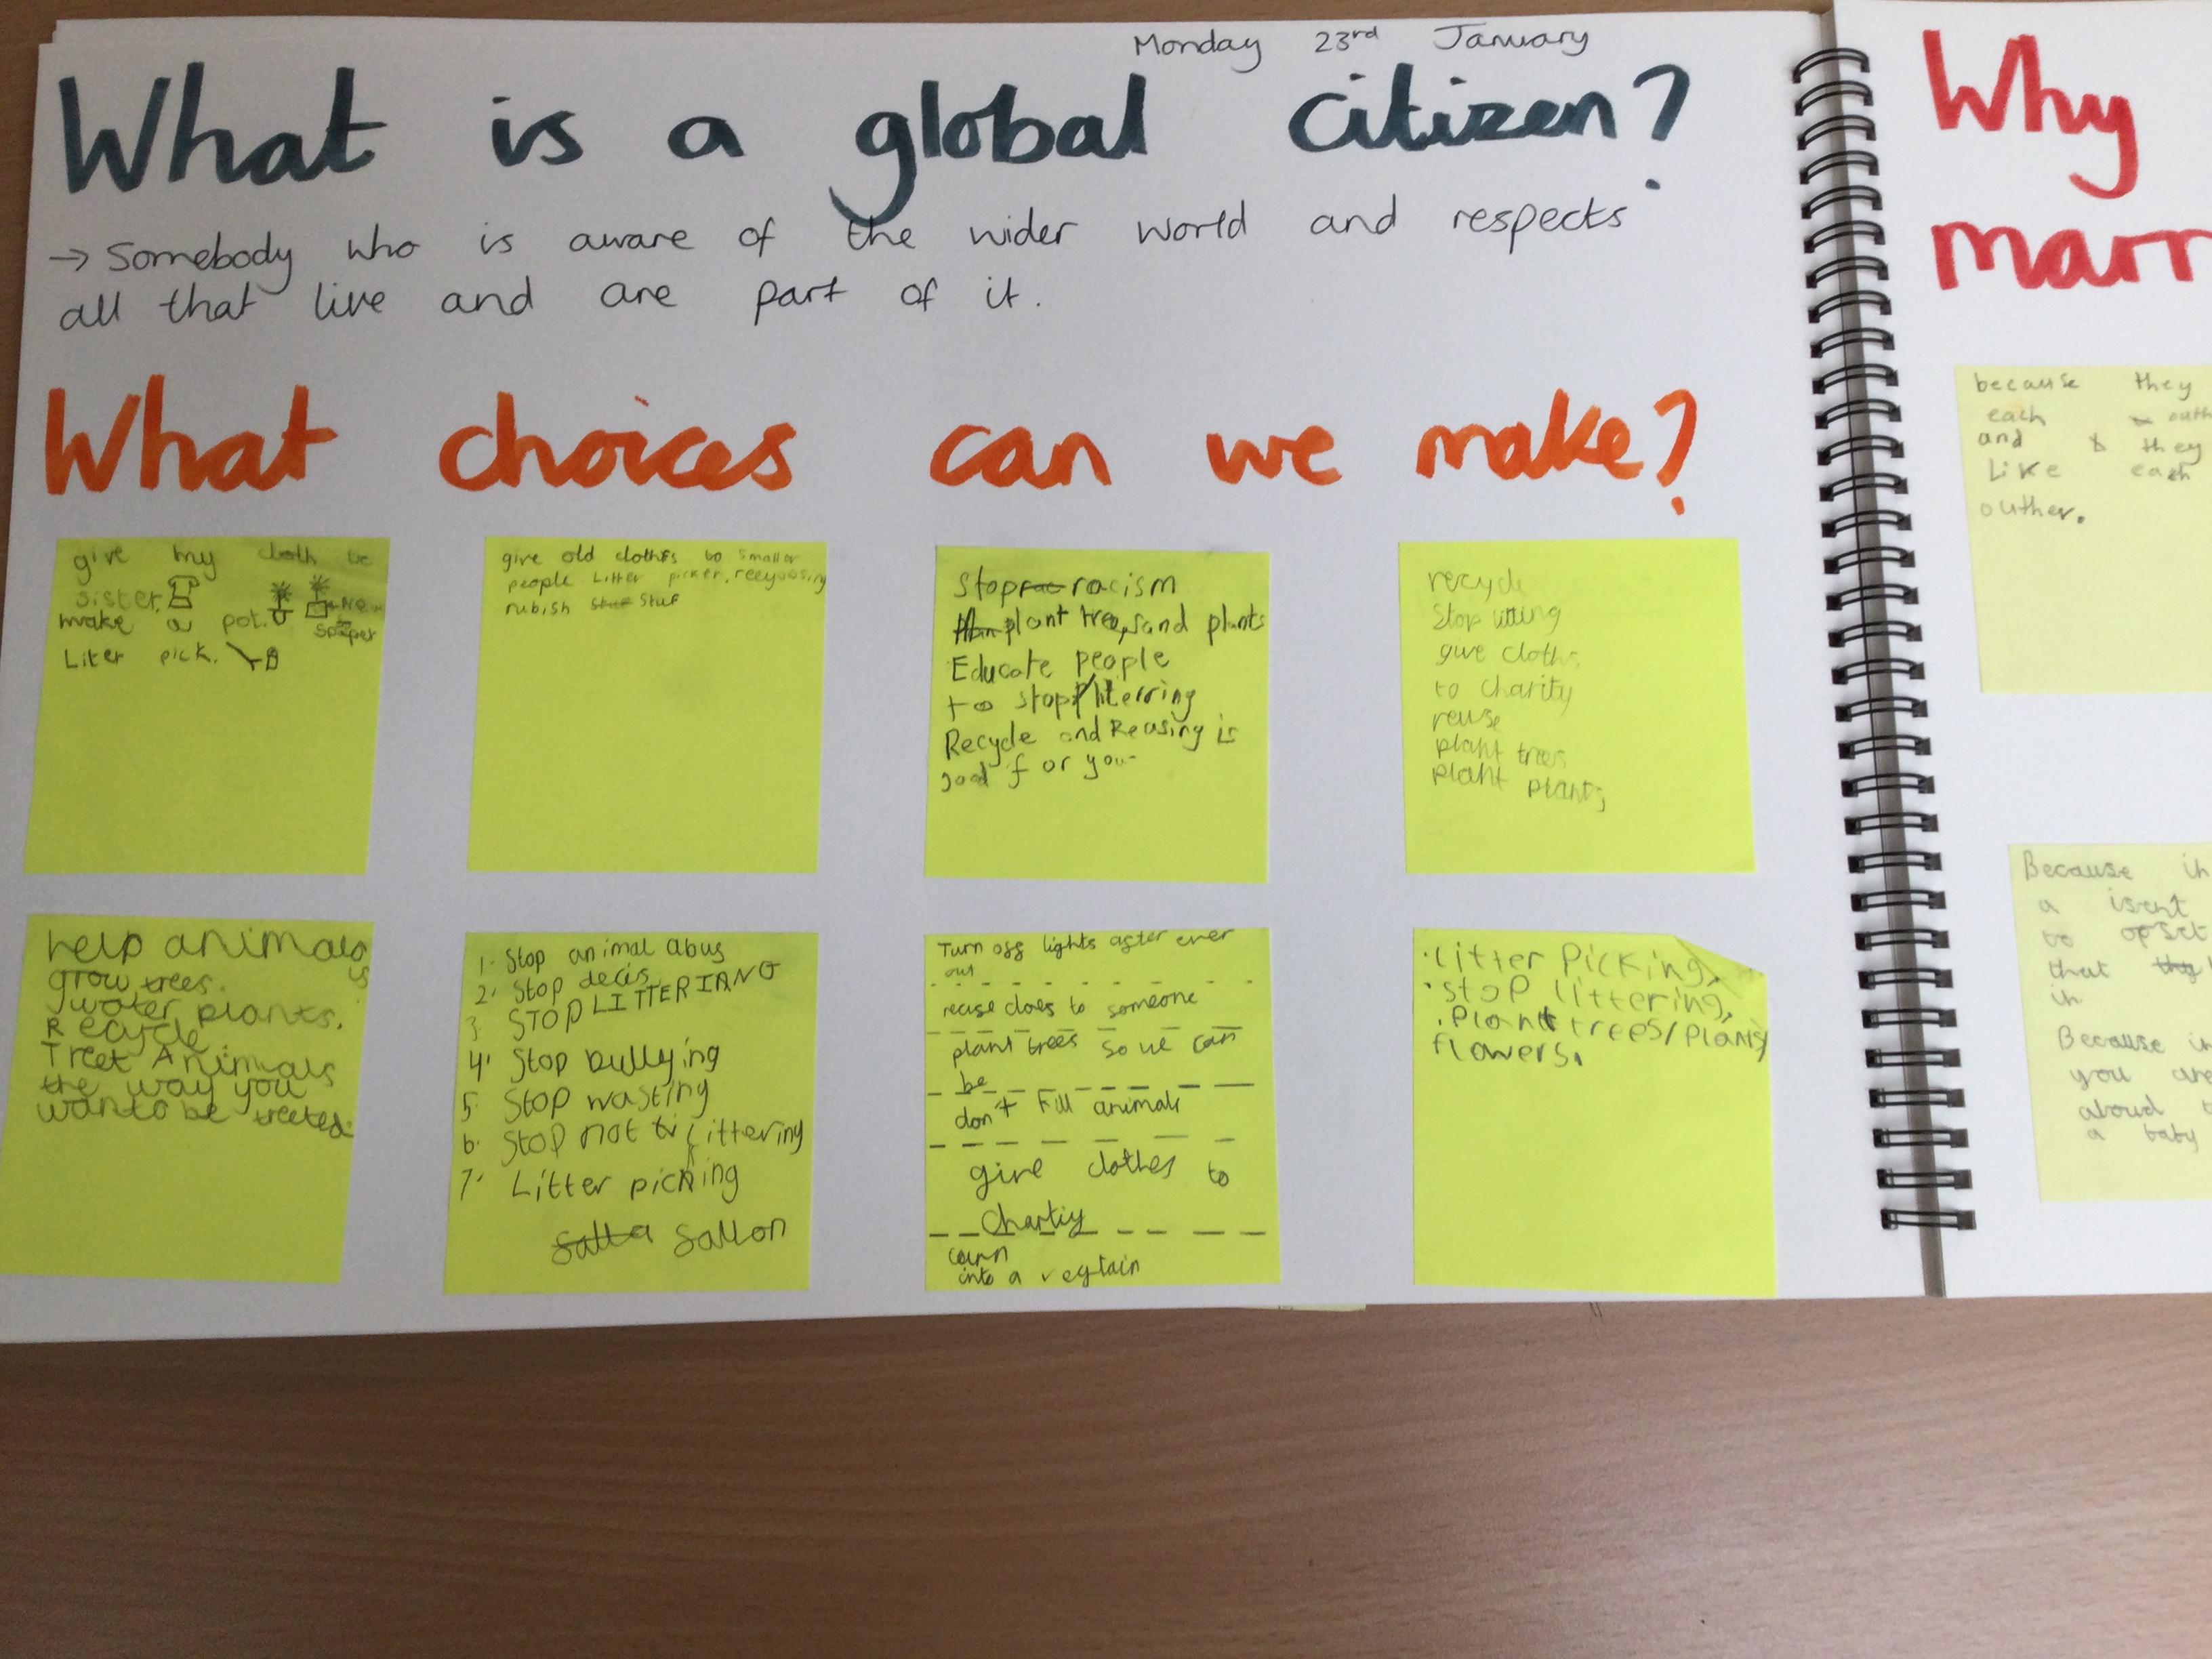 Monday 23rd January
What is a global citizen?
→ Somebody who is aware of the wider world and respects
all that live and are part of it.
What choices can we make?
give my cloth be
sister.
make a pot.
Liter pick.
give old clothes to smaller
people Litter picker,
rubish Stuf
Stop racism
plant trees and plants
Educate people
to stop literring
Recycle and Reusing is
good for you
recycle
Stop litting
give cloths
to charity
reuse
plant trees
plant plants
help animals
grow trees.
water plants.
Recycle
Treet Animals
the way you
wanto be treeted
1. Stop animal abus
2. Stop decis
3. STOP LITTERIANG
4. Stop bullying
5. Stop wasting
6. Stop not littering
7. Litter picking
Sallon
Turn off lights after ever
out
reuse cloes to someone
plant trees so we can
be
don't kill animals
give clothes to
Chartiy
into a vegtain
. Litter Picking,
. stop littering,
. Plant trees/plants/
flowers.
Why
marr
because they
each
and they
Like each
outher.
Because
a isent
to opset
that
Because
you are
a baby